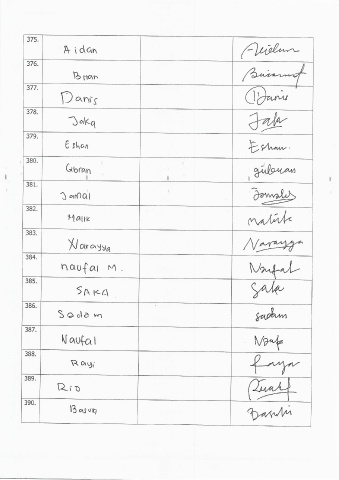 375. Aidan Aidan
376. Brian
377. Danis Danis
378. Jaka Jaka
379. Eshan Eshan.
380. Gibran gibran
381. Jamal
382. Malik
383. Narayya Narayya
384. naufal M. Naufal
385. SAKA Saka
386. Sadam sadam
387. Naufal
388. Rayi
389. RIO
390.